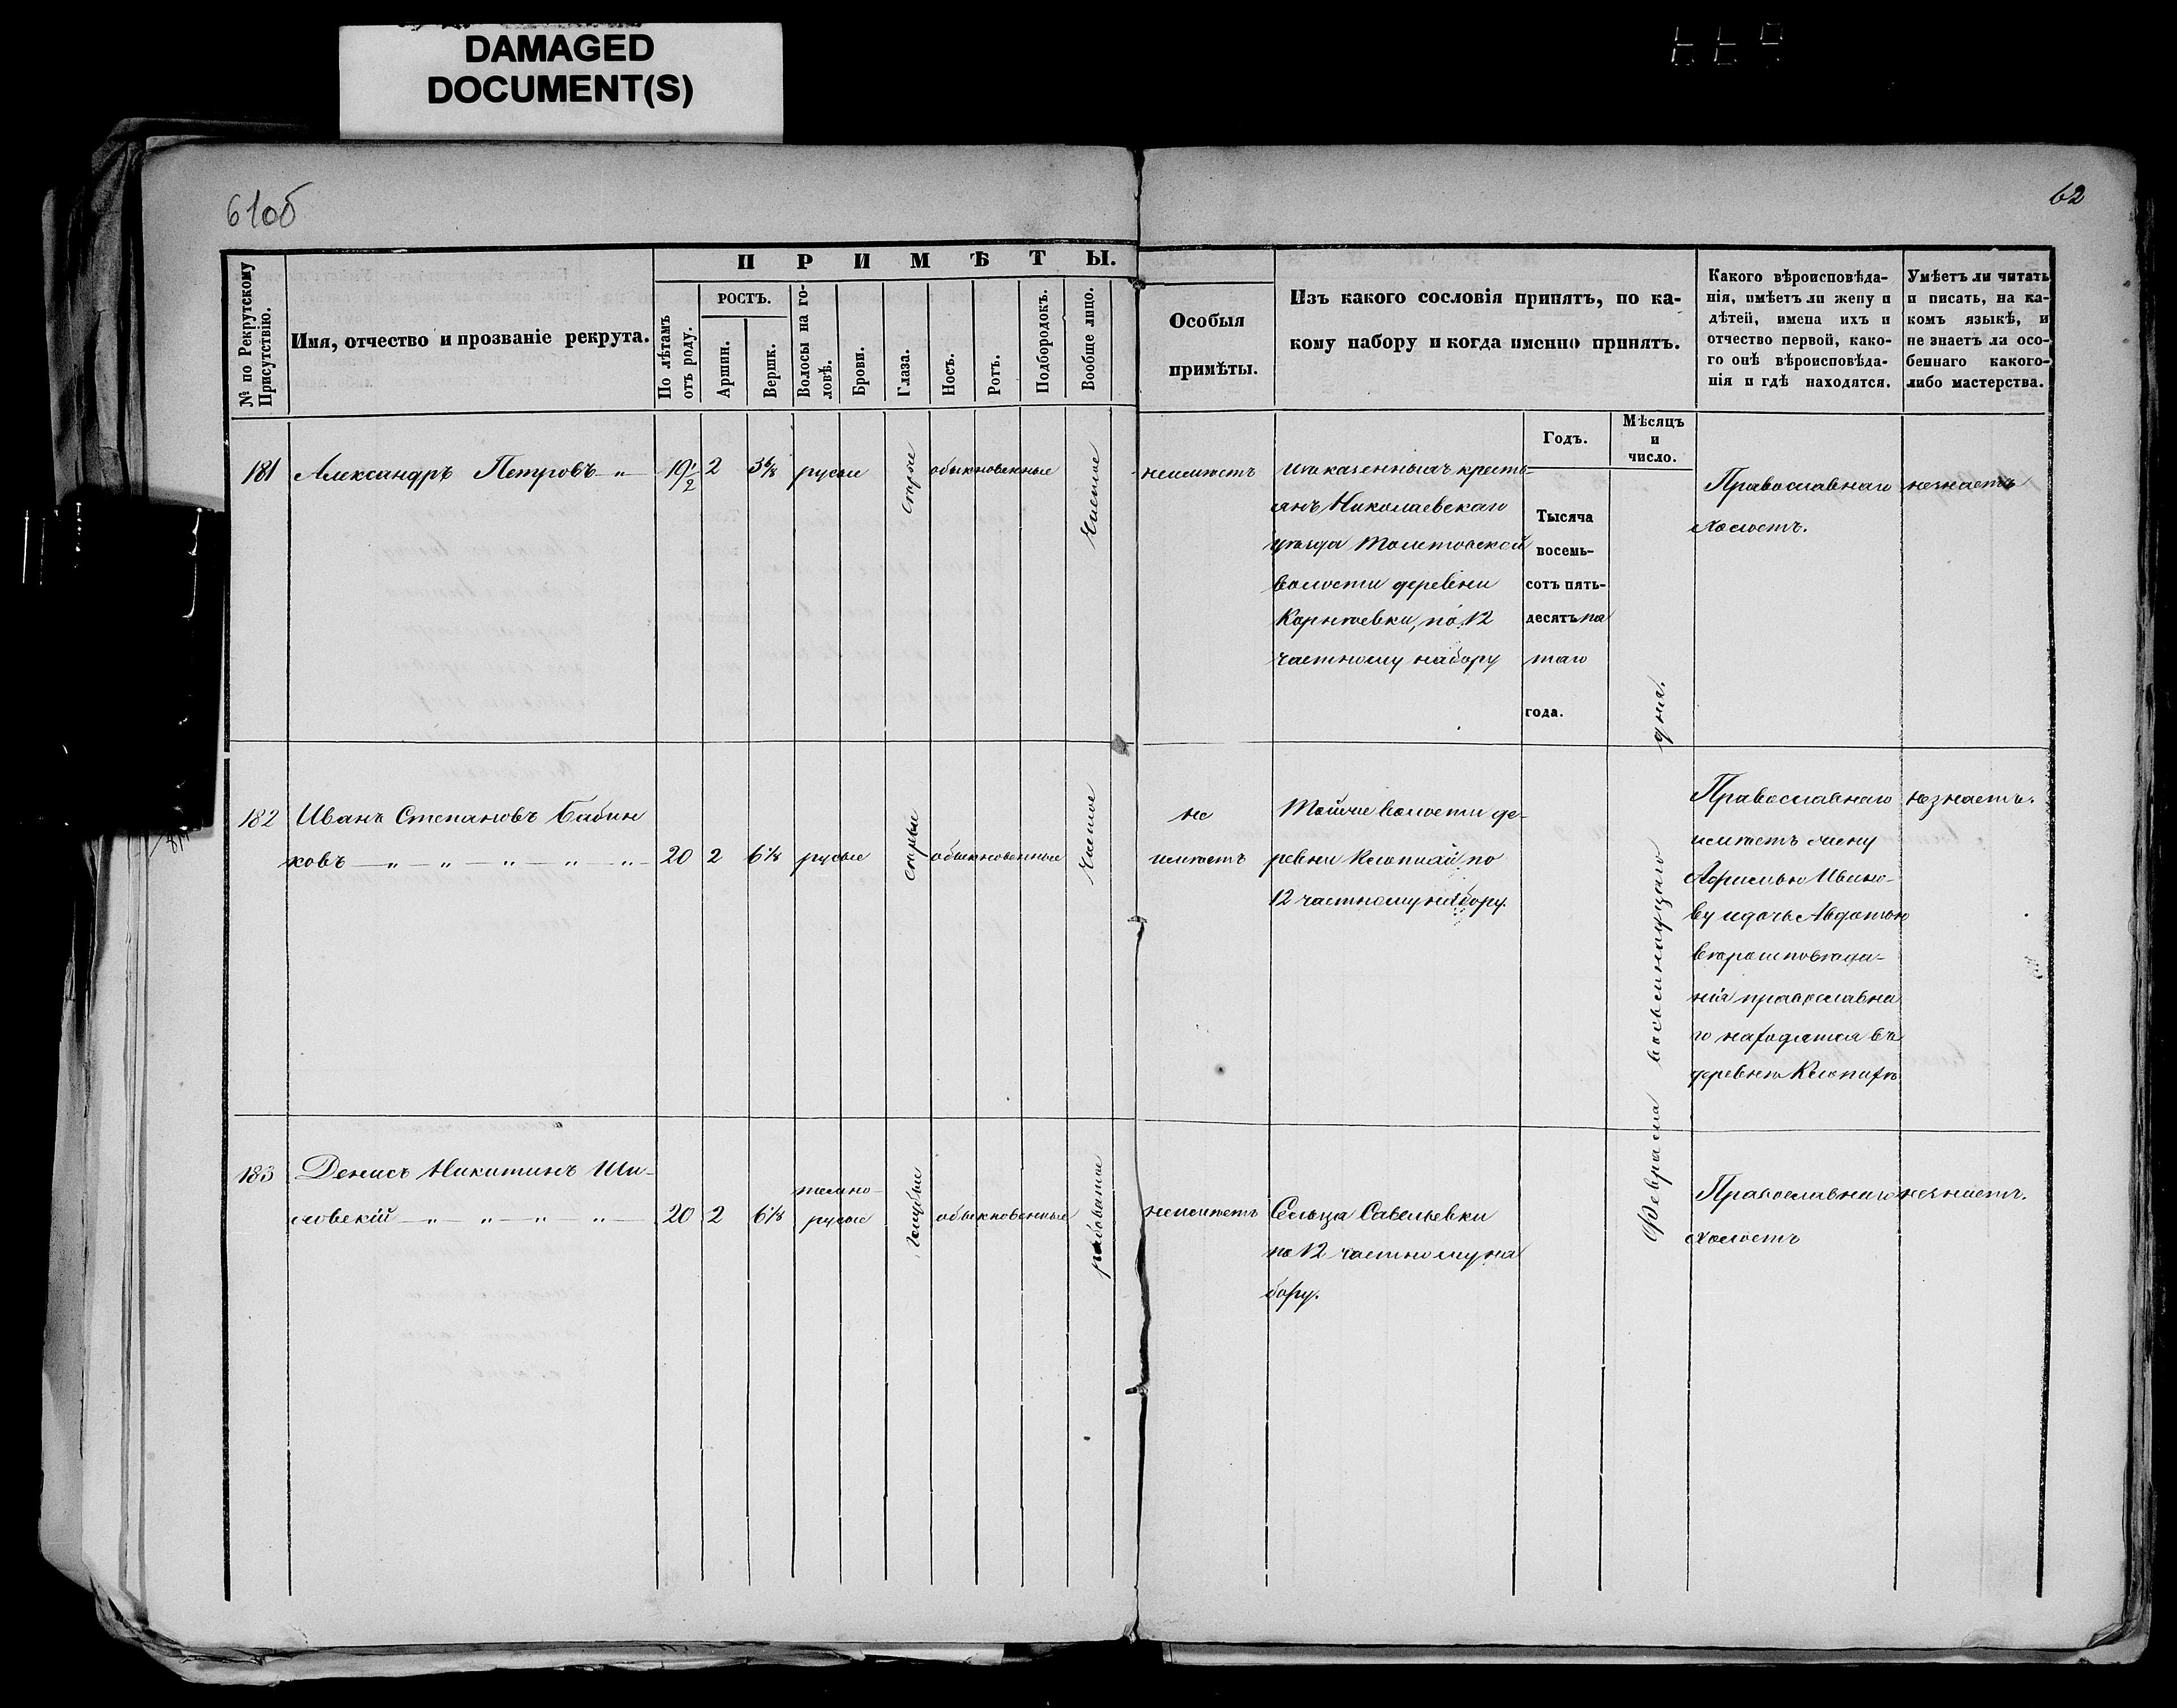 DAMAGED
DOCUMENT(S)
61об
62
№ по Рекрутскому
Присутствію.
Имя, отчество и прозваніе рекрута.
ПРИМѢТЫ.
По лѣтамъ
отъ роду.
РОСТЪ.
Аршин.
Вершк.
Волосы на го-
ловѣ.
Брови.
Глаза.
Носъ.
Ротъ.
Подбородокъ.
Вообще лицо.
Особыя
примѣты.
Изъ какого сословія принятъ, по ка-
кому набору и когда именно принятъ.
Какого вѣроисповѣда-
нія, имѣетъ ли жену и
дѣтей, имена ихъ и
отчество первой, како-
го онѣ вѣроисповѣда-
нія и гдѣ находятся.
Умѣетъ ли читать
и писать, на ка-
комъ языкѣ, и
не знаетъ ли осо-
беннаго какого-
либо мастерства.
Годъ.
Мѣсяцъ
и
число.
181 Александръ Петровъ — „ — 19 1/2 2 3 6/8 русые сѣрые обыкновенные чистое неимѣетъ
изъ казенныхъ кресть-
янъ Николаевскаго
уѣзда
волости деревни
по 12
частному набору
Тысяча
восемь-
сотъ пять-
десятъ пя
таго
года.
Февраля восьмнадцаго дня.
Православнаго
холостъ.
незнаетъ
182 Иванъ Степановъ Бабин
ковъ — „ — „ — „ — „ — „ — 20 2 6 1/8 русые сѣрые обыкновенные чистое
не
имѣетъ
Тойже волости де-
ревни по
12 частному набору.
Православнаго
имѣетъ жену
Афимью Ивано-
ву идочь Авдотью
вѣроисповѣда-
нія православна
го находятся въ
деревнѣ
незнаетъ.
183 Денисъ Никитинъ Ши-
ловскій — „ — „ — „ — „ — 20 2 6 1/8
темно-
русые
голубые обыкновенные рябоватое неимѣетъ
Сельца Савельевки
по 12 частному на
бору.
Православнаго
холостъ
незнаетъ.